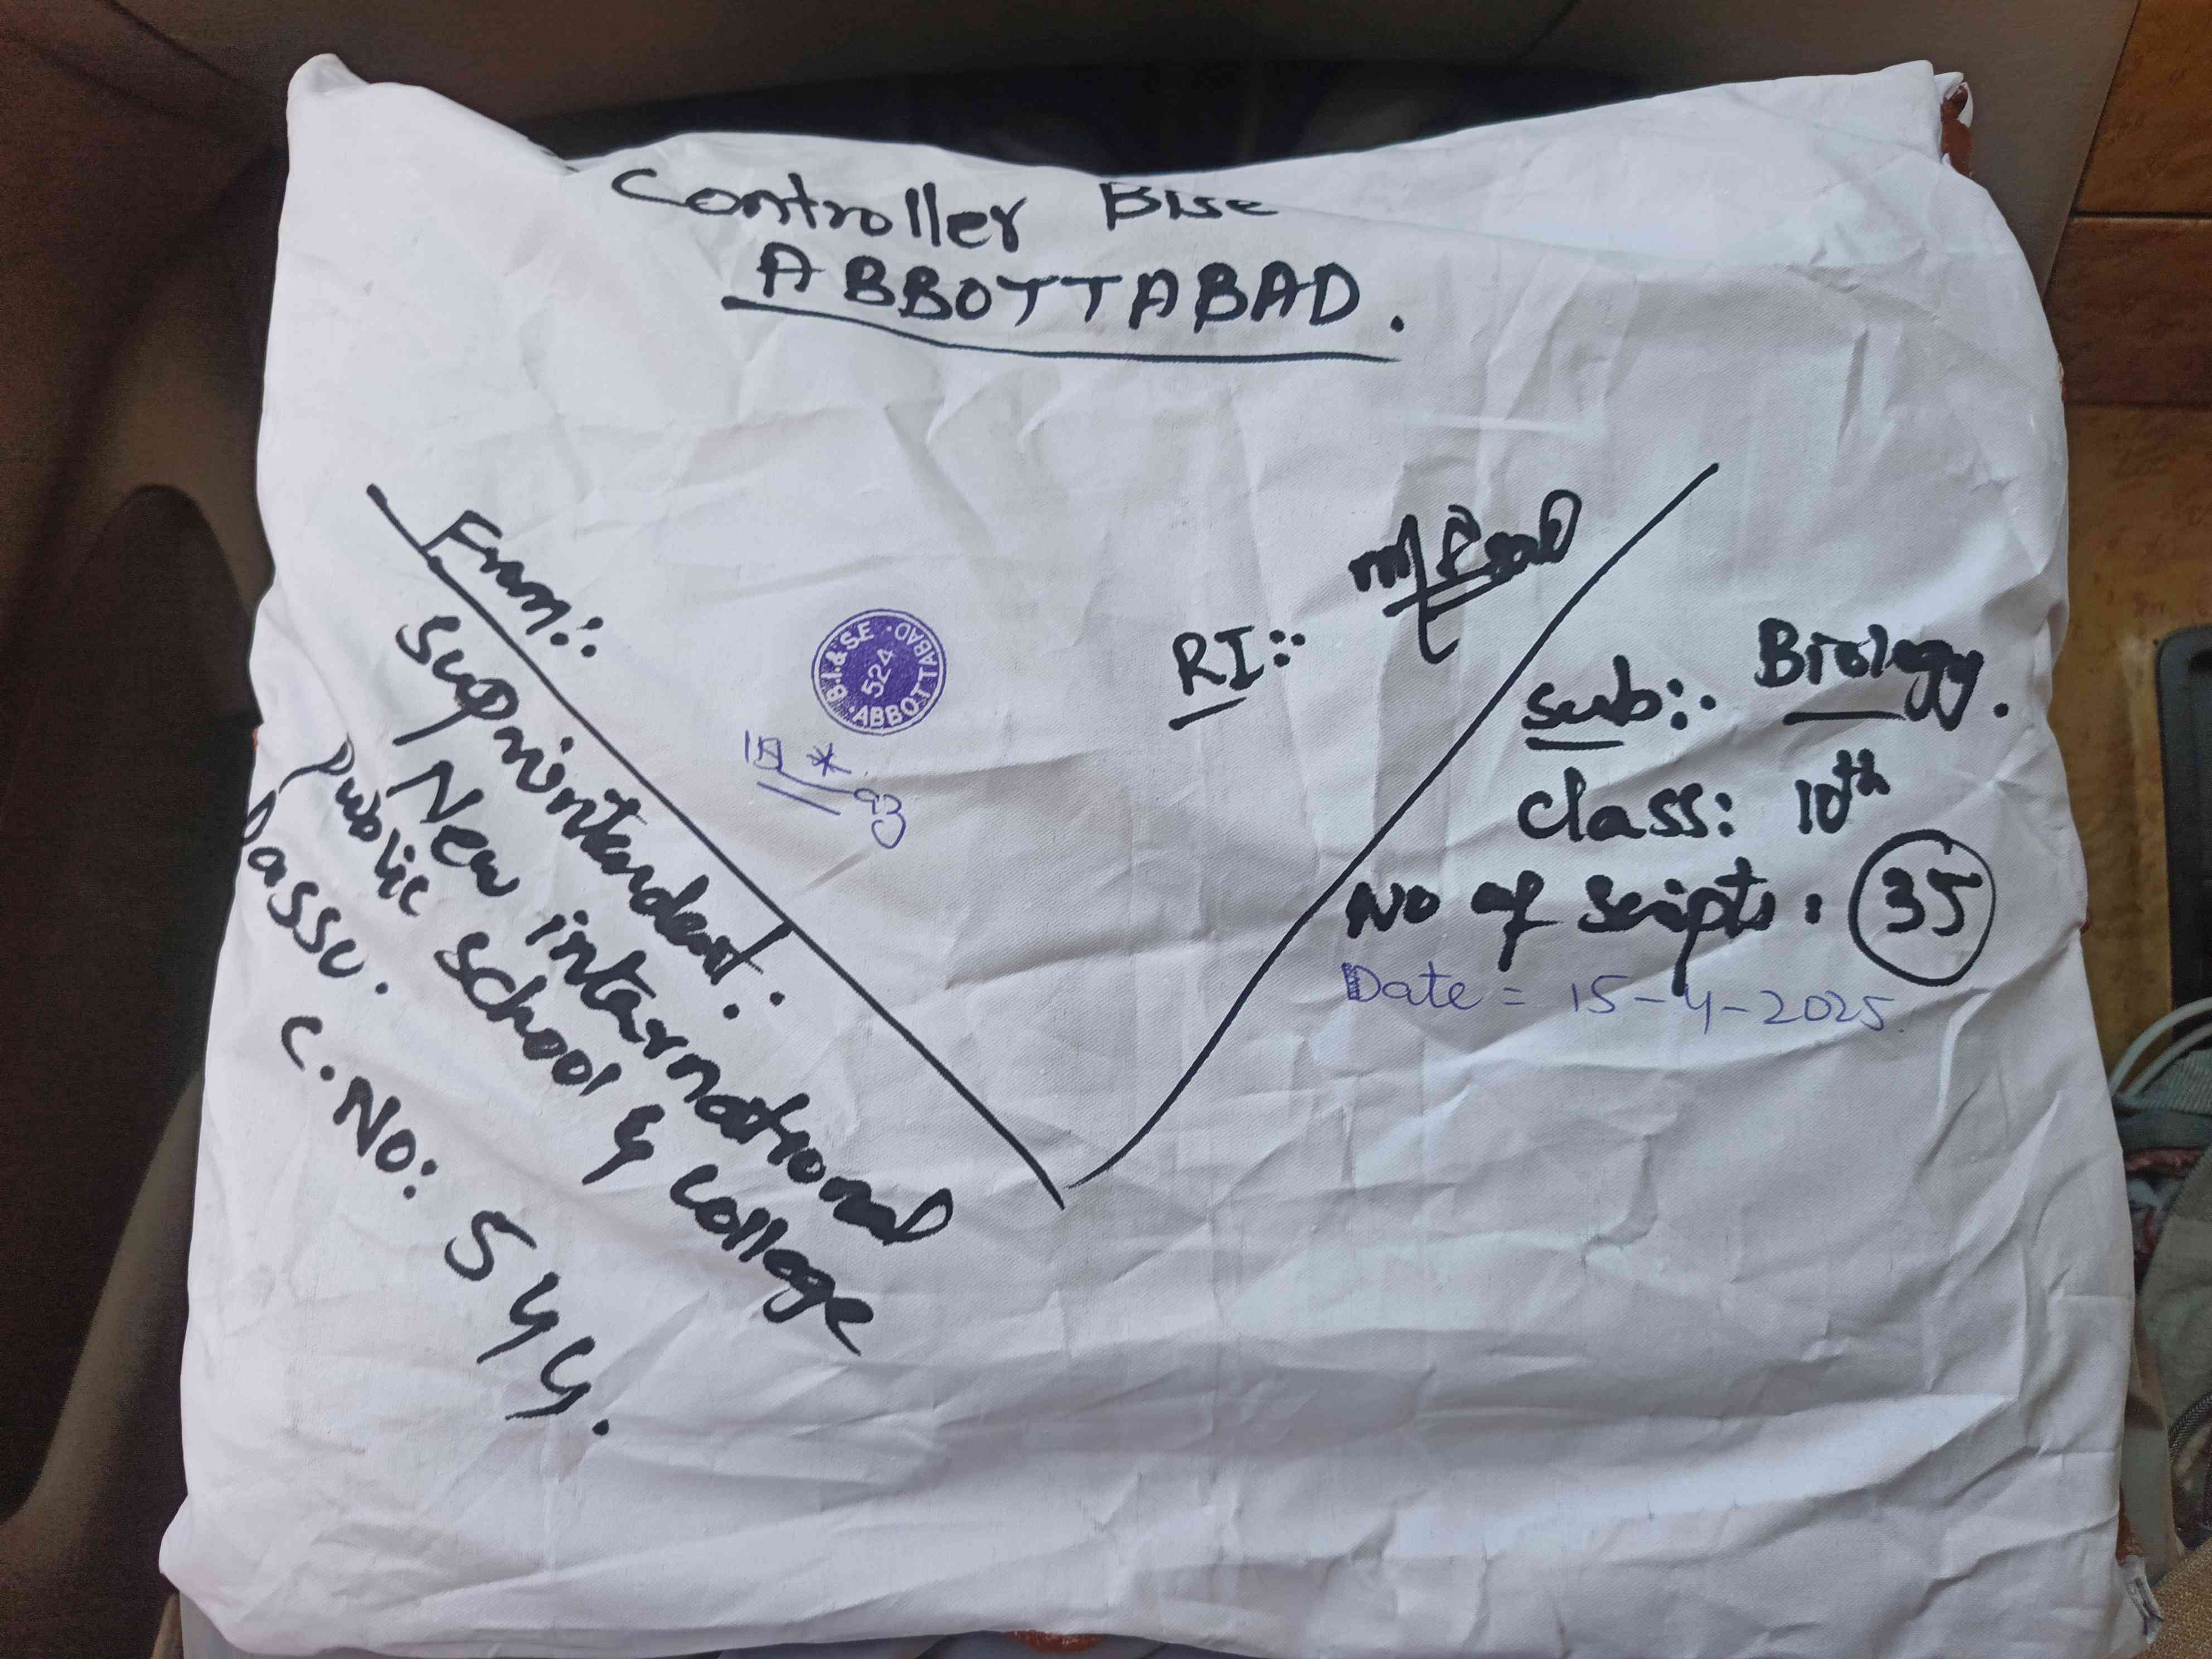 Controller Bise
ABBOTTABAD.
From:.
Suprintendent:.
New international
Public School & College
Dassu.
C.No: 544.
B.I.&S.E. ABBOTTABAD
524
RI::
Sub:. Biology.
Class: 10th
No of Scripts: 35
Date = 15-4-2025.